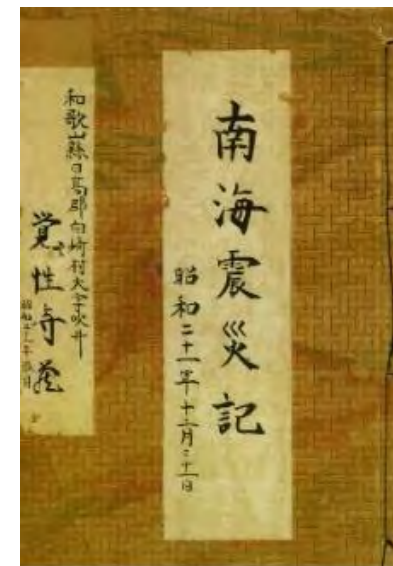 南海震災記
昭和二十一年十二月二十一日
和歌山縣日高郡白崎村大字吹井
覚性寺蔵